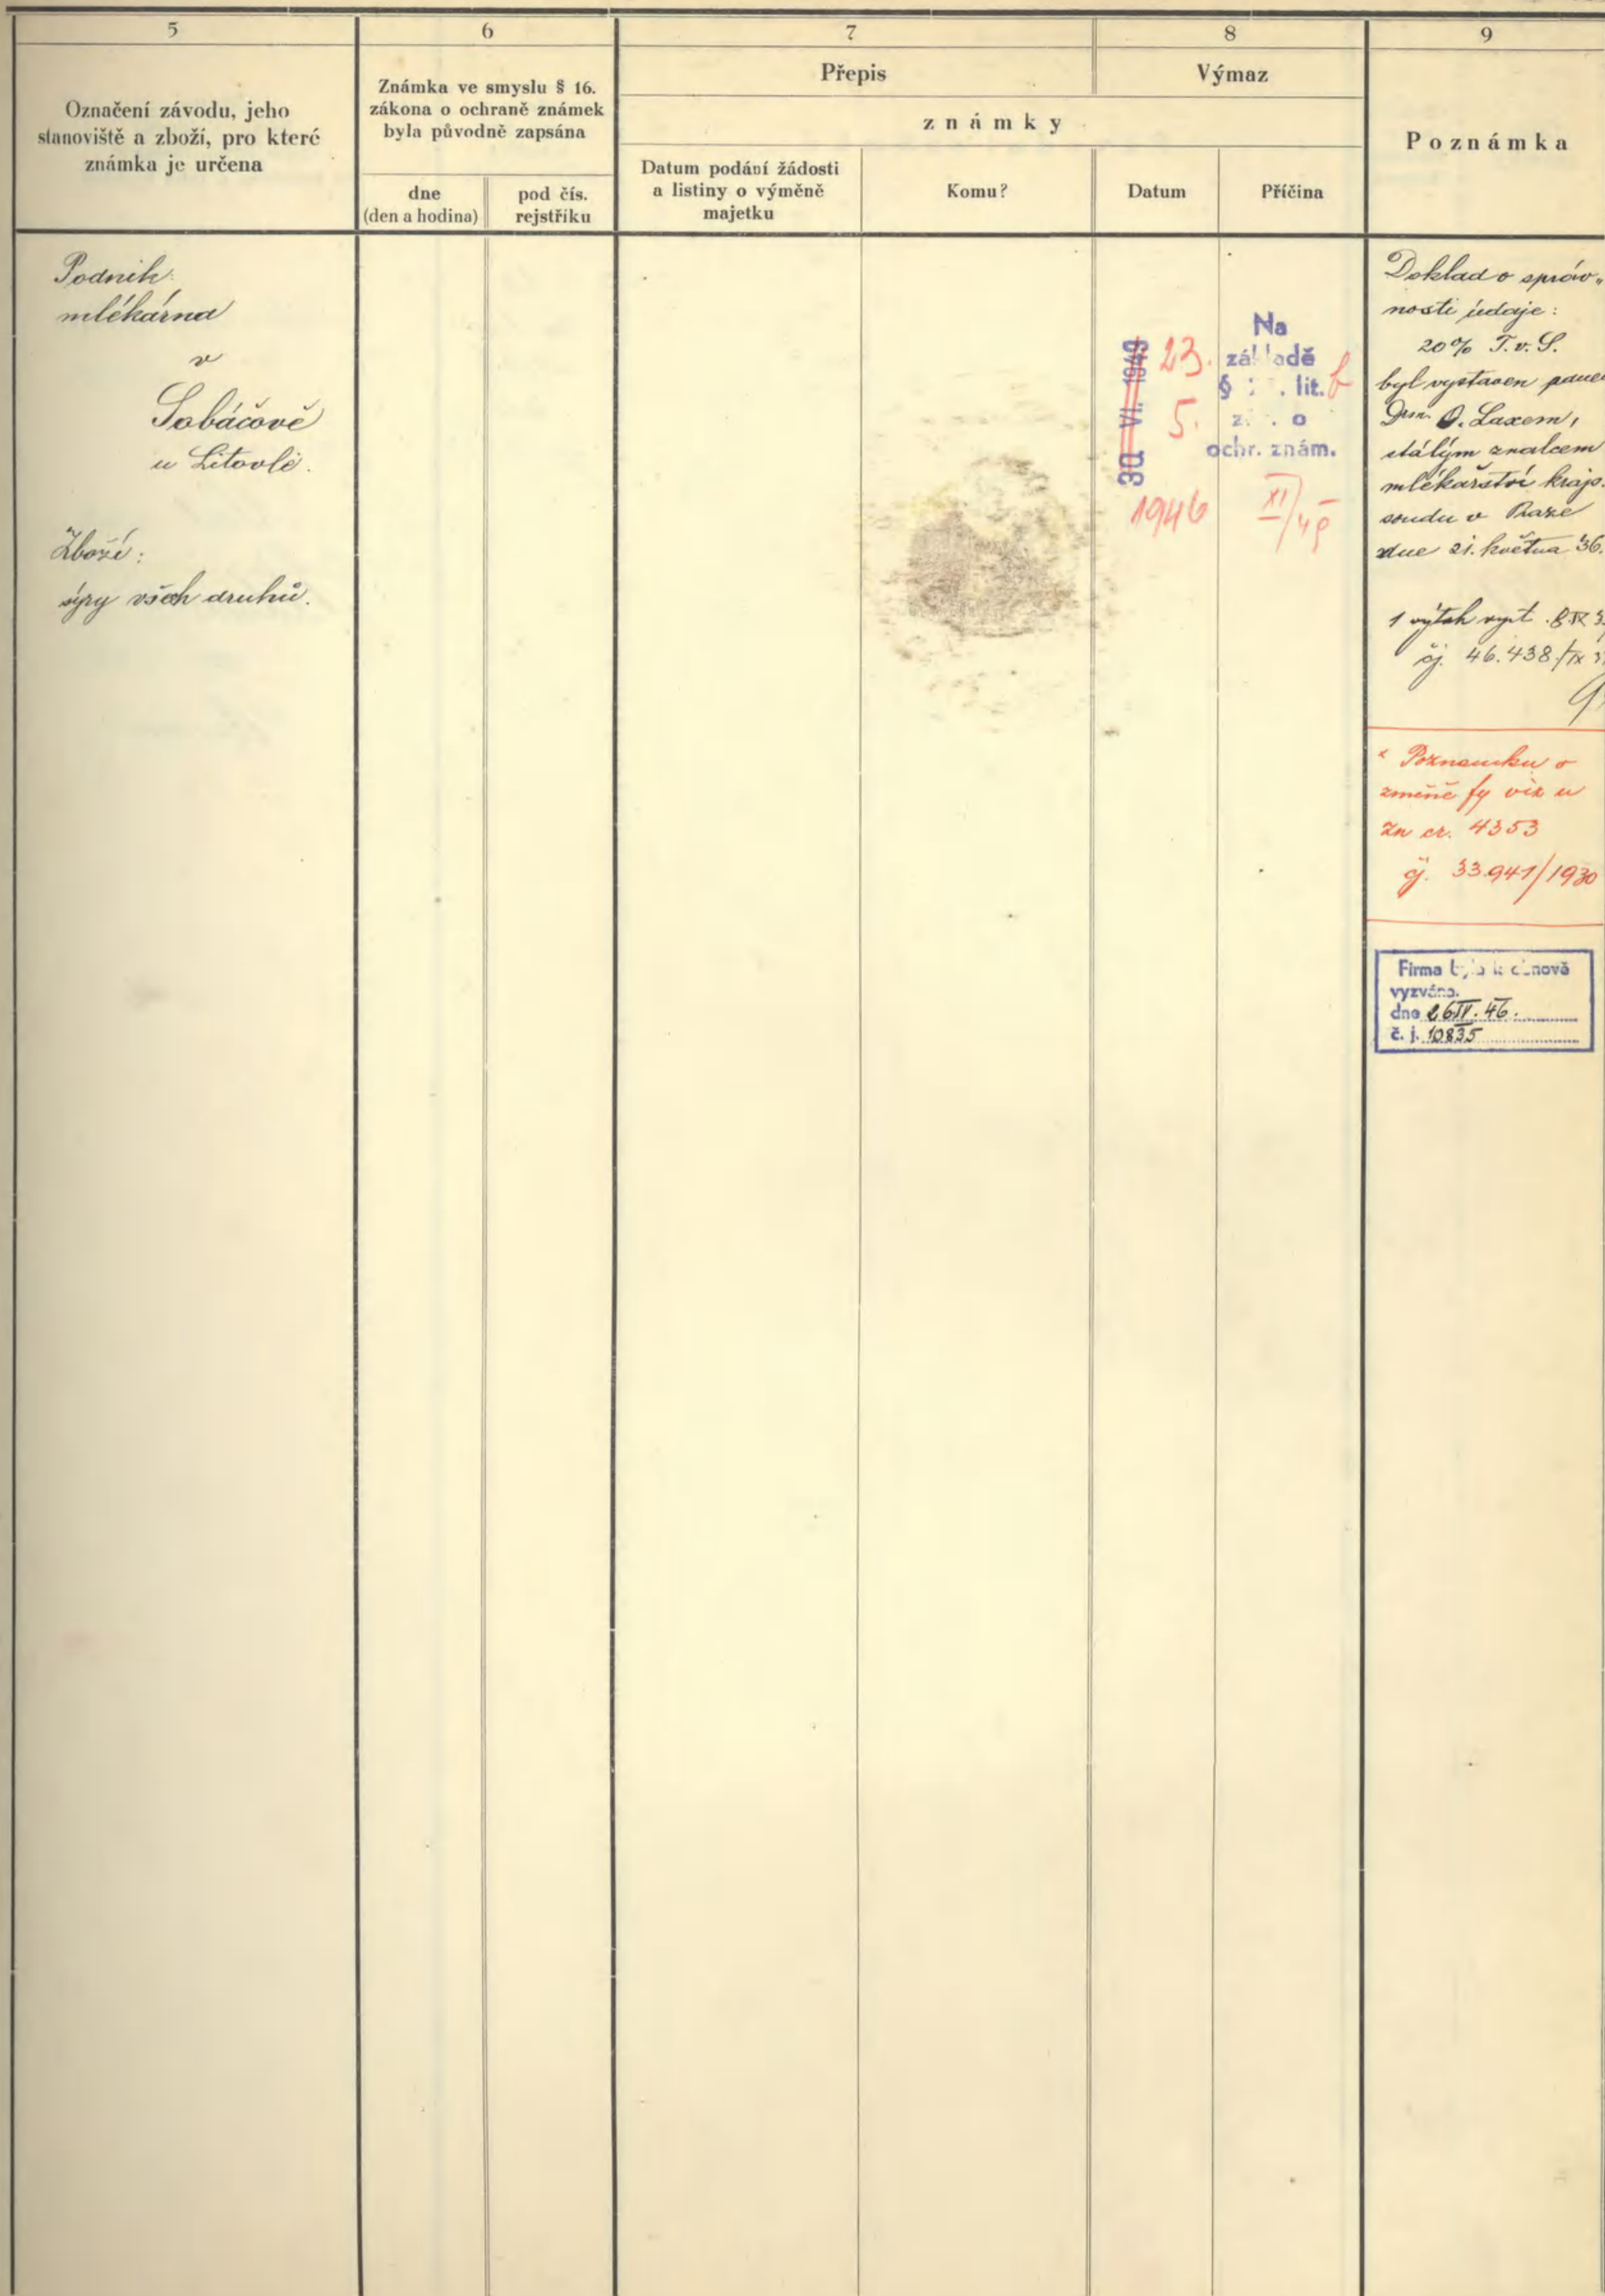 5
6
7
8
9
Označení závodu, jeho
stanoviště a zboží, pro které
známka je určena
Známka ve smyslu § 16.
zákona o ochraně známek
byla původně zapsána
dne
(den a hodina)
pod čís.
rejstříku
Přepis
Výmaz
známky
Datum podání žádosti
a listiny o výměně
majetku
Komu?
Datum
Příčina
Poznámka
Podnik:
mlékárna
v
Sobáčově
u Litovle.
Zboží:
sýry všech druhů.
30 VI. 1949
23.
5.
1946
Na
základě
§ lit. b
o
ochr. znám.
XI/49
Doklad o správ„
nosti údaje:
20% T.v.S.
byl vystaven panem
O. Laxem,
stálým znalcem
mlékařství krajs.
soudu v Praze
dne 21. května 36.
1 výtah vyst. 8 IX 3
čj. 46.438/IX 3
x Poznámku o
změně fy viz u
zn čr. 4353
čj. 33.941/1930
Firma byla k obnově
vyzvána.
dne 26 IV. 46.
č. j. 10835